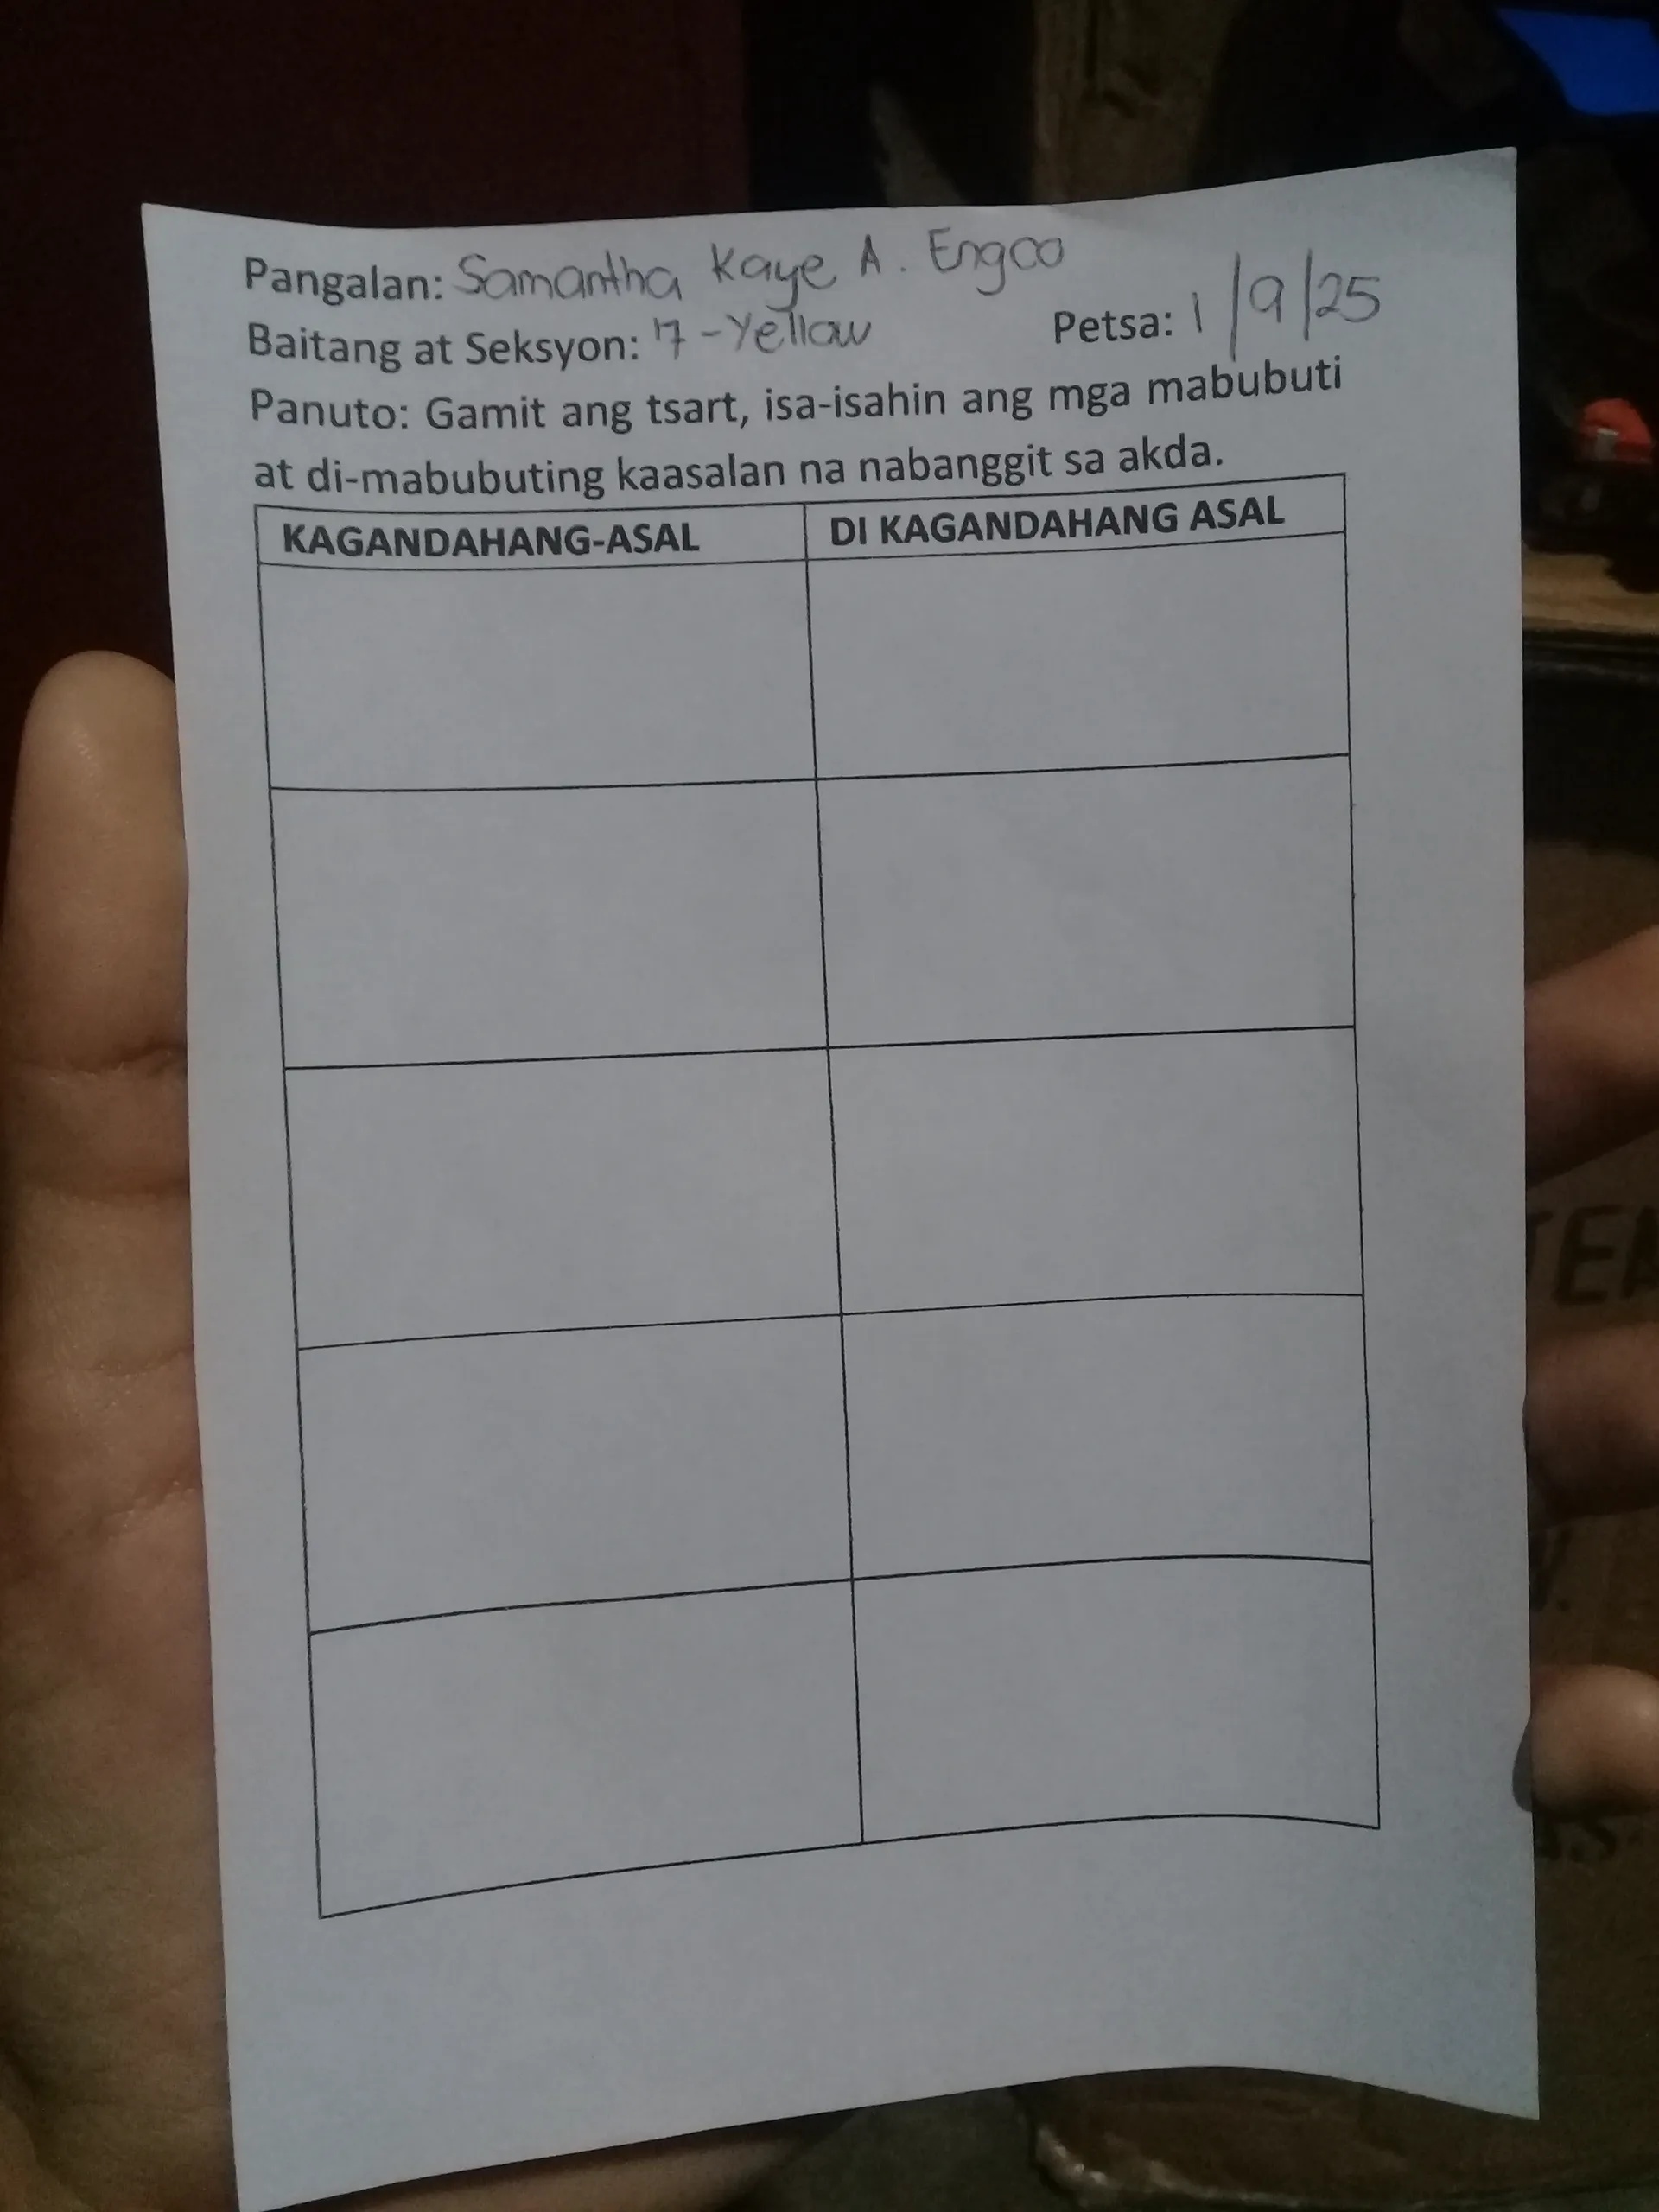 Pangalan: Samantha Kaye A. Engco
Baitang at Seksyon: 7 - Yellow Petsa: 1/9/25
Panuto: Gamit ang tsart, isa-isahin ang mga mabubuti
at di-mabubuting kaasalan na nabanggit sa akda.
KAGANDAHANG-ASAL DI KAGANDAHANG ASAL